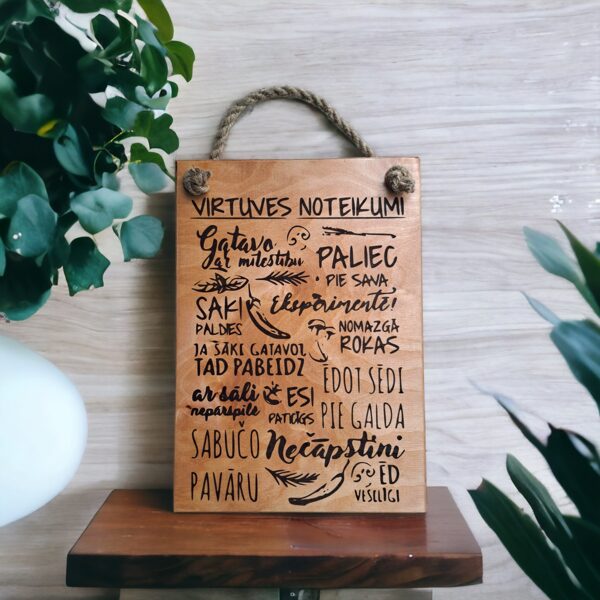 VIRTUVES NOTEIKUMI
Gatavo
ar mīlestību
PALIEC
PIE SAVA
SAKI
PALDIES
Eksperimentē!
NOMAZGĀ
ROKAS
JA SĀKI GATAVOT
TAD PABEIDZ
ar sāli
nepārspīlē
ESI
PATIESS
ĒDOT SĒDI
PIE GALDA
SABUČO
PAVĀRU
Nečāpstini
ĒD
VESELĪGI